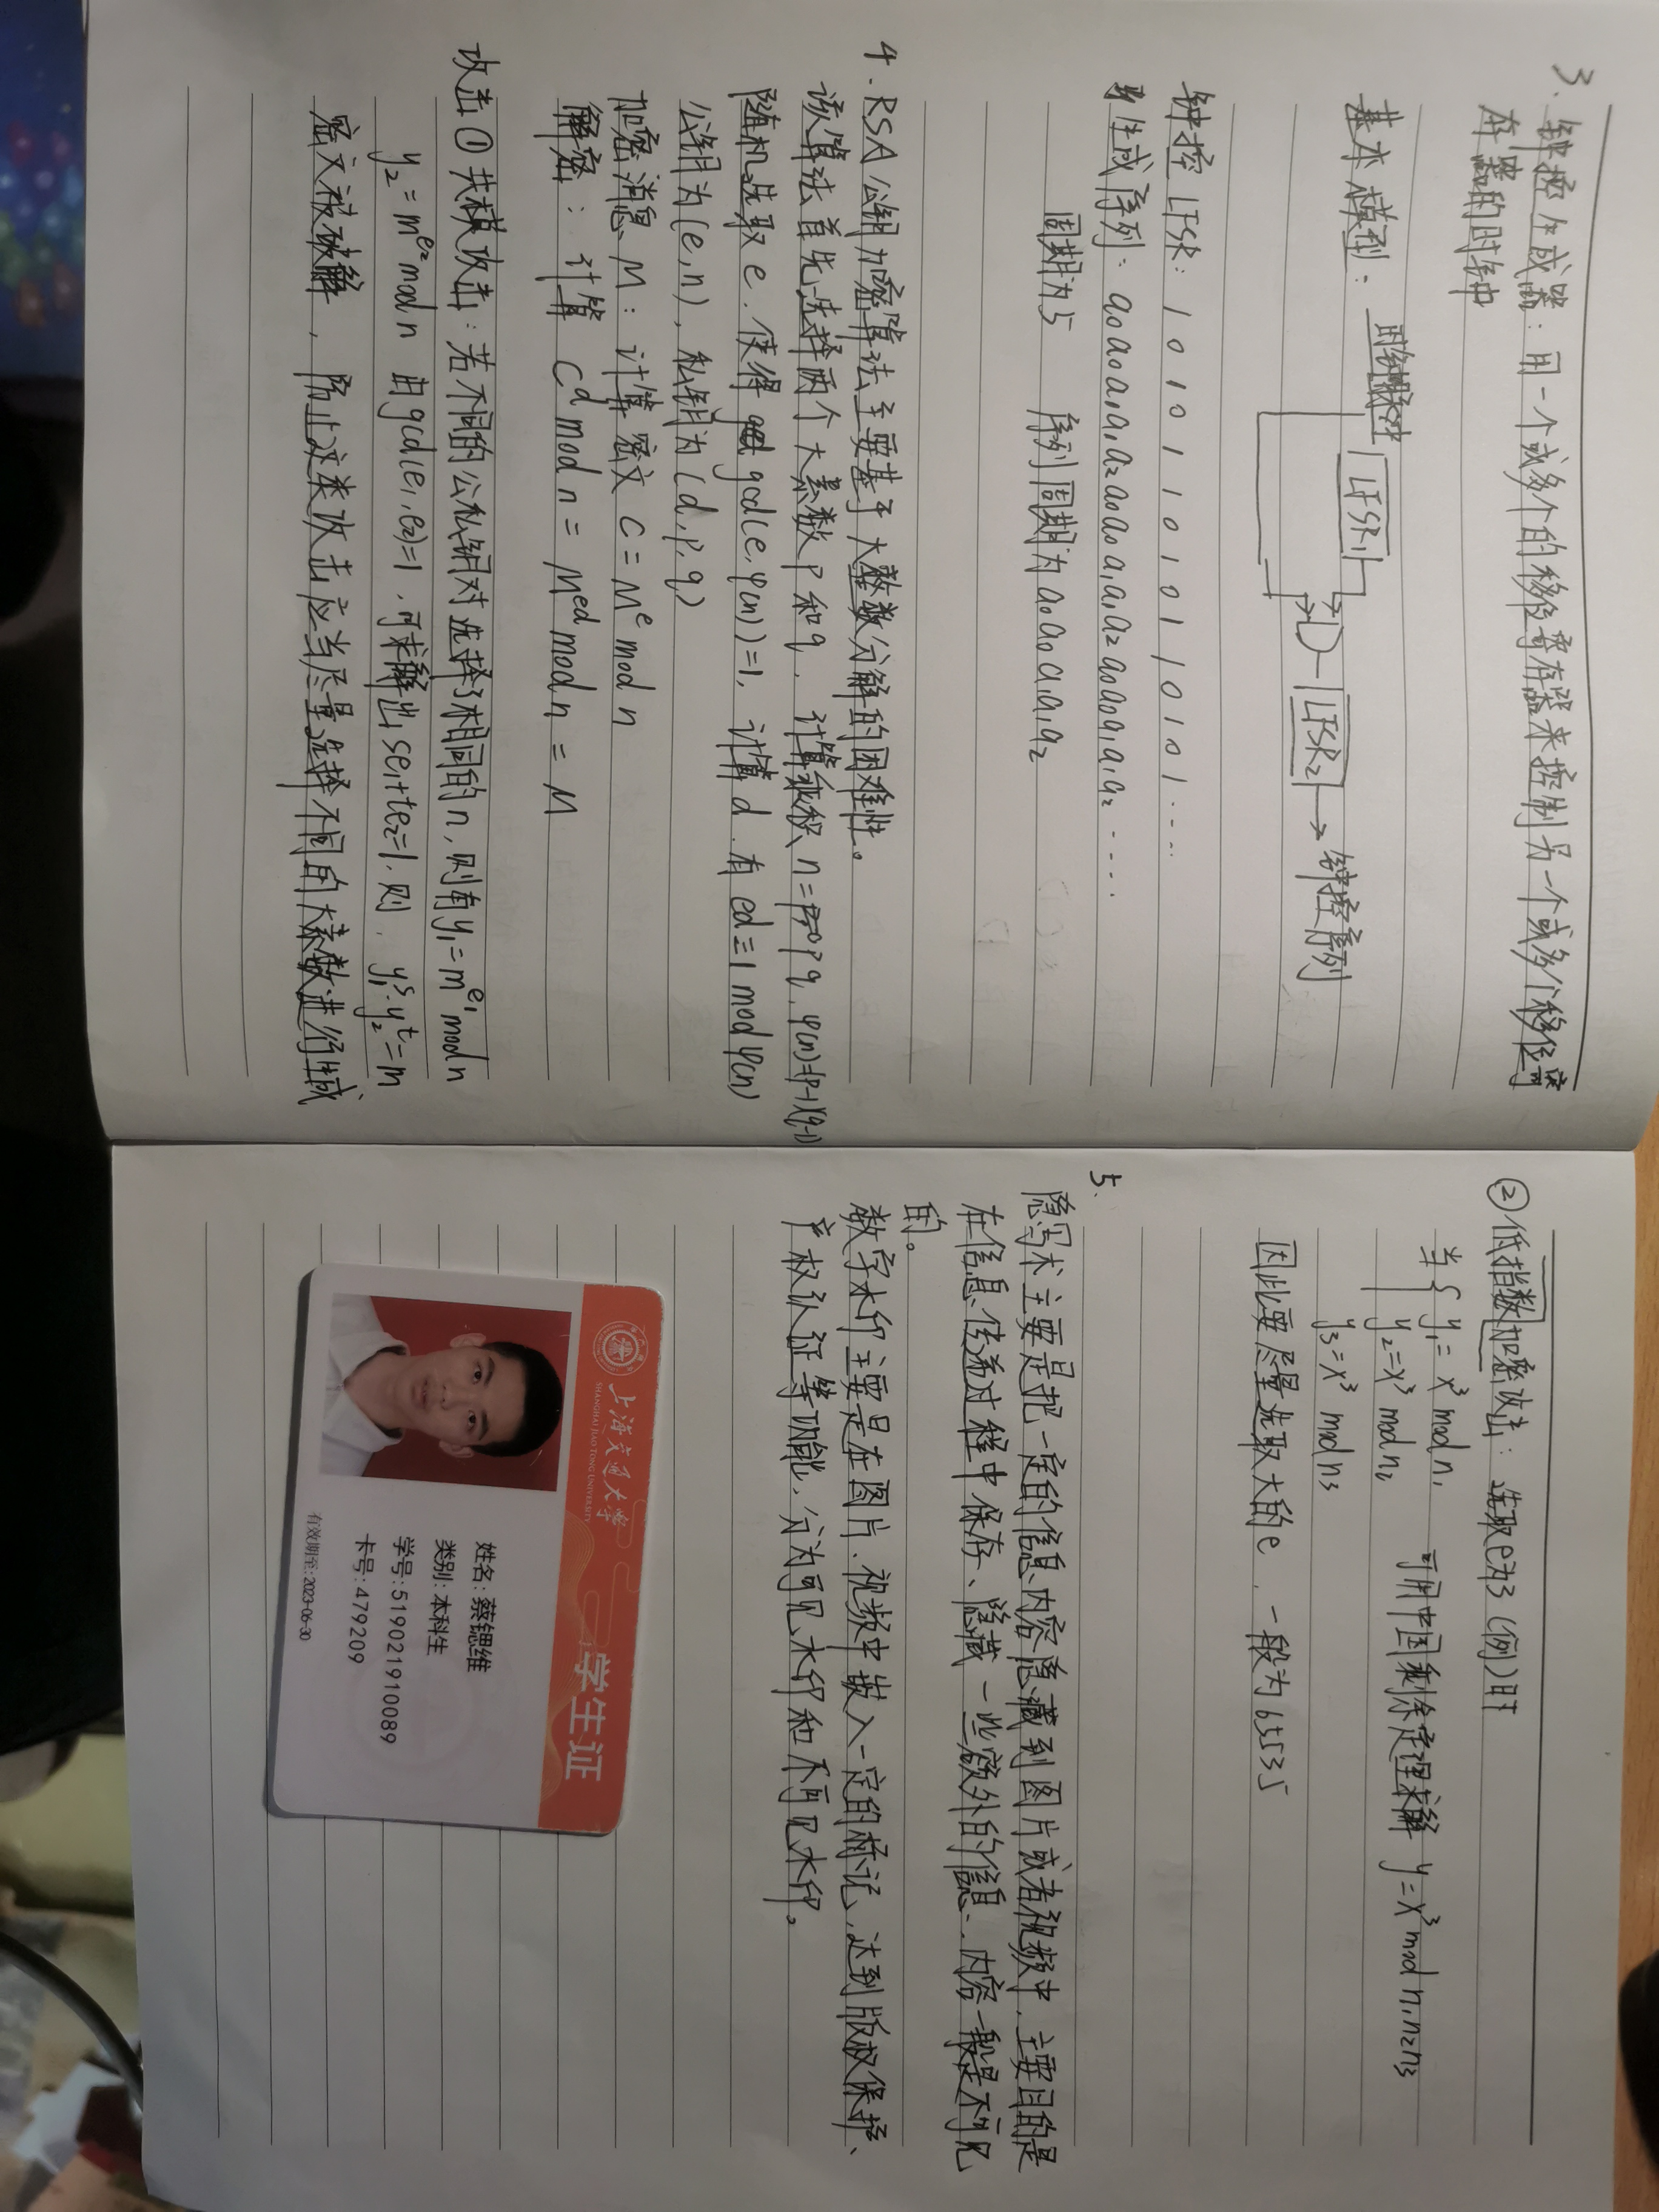 3. 钟控生成器：用一个或多个的移位寄存器来控制另一个或多个移位寄
存器的时钟
基本模型： 时钟脉冲 LFSR1 D LFSR2 → 钟控序列
钟控 LFSR： 1 0 1 0 1 1 0 1 0 1 1 0 1 0 1 ....
生成序列： a0 a0 a1 a1 a2 a0 a0 a1 a1 a2 a0 a0 a1 a1 a2 ......
周期为5 序列周期为 a0 a0 a1 a1 a2
4. RSA公钥加密算法主要基于大整数分解的困难性。
该算法首先选择两个大素数p和q，计算乘积 n=pq, φ(n)=(p-1)(q-1)
随机选取e，使得 gcd(e,φ(n))=1，计算d，有 ed≡1 mod φ(n)
公钥为(e,n)，私钥为(d,p,q)
加密消息M：计算密文 C=M^e mod n
解密：计算 C^d mod n = M^ed mod n = M
攻击①共模攻击：若不同的公私钥对选择了相同的n，则有y₁=m^e₁ mod n
y₂=m^e₂ mod n 由gcd(e₁,e₂)=1，可求解出 se₁+te₂=1，则 y₁^s·y₂^t=m
密文被破解，防止这类攻击应当尽量选择不同的大素数进行生成
②低指数加密攻击：选取e为3（例）时
当{ y₁=x³ mod n₁
y₂=x³ mod n₂ 可用中国剩余定理求解 y=x³ mod n₁n₂n₃
y₃=x³ mod n₃
因此要尽量选取大的e，一般为65535
5.
隐写术主要是把一定的信息内容隐藏到图片或者视频中，主要目的是
在信息传递过程中保存、隐藏一些额外的信息，内容一般是不可见
的。
数字水印主要是在图片、视频中嵌入一定的标记，达到版权保护、
产权认证等功能，分为可见水印和不可见水印。
上海交通大学
SHANGHAI JIAO TONG UNIVERSITY
学生证
姓名：蔡锶维
类别：本科生
学号：519021910089
卡号：479209
有效期至：2023-06-30